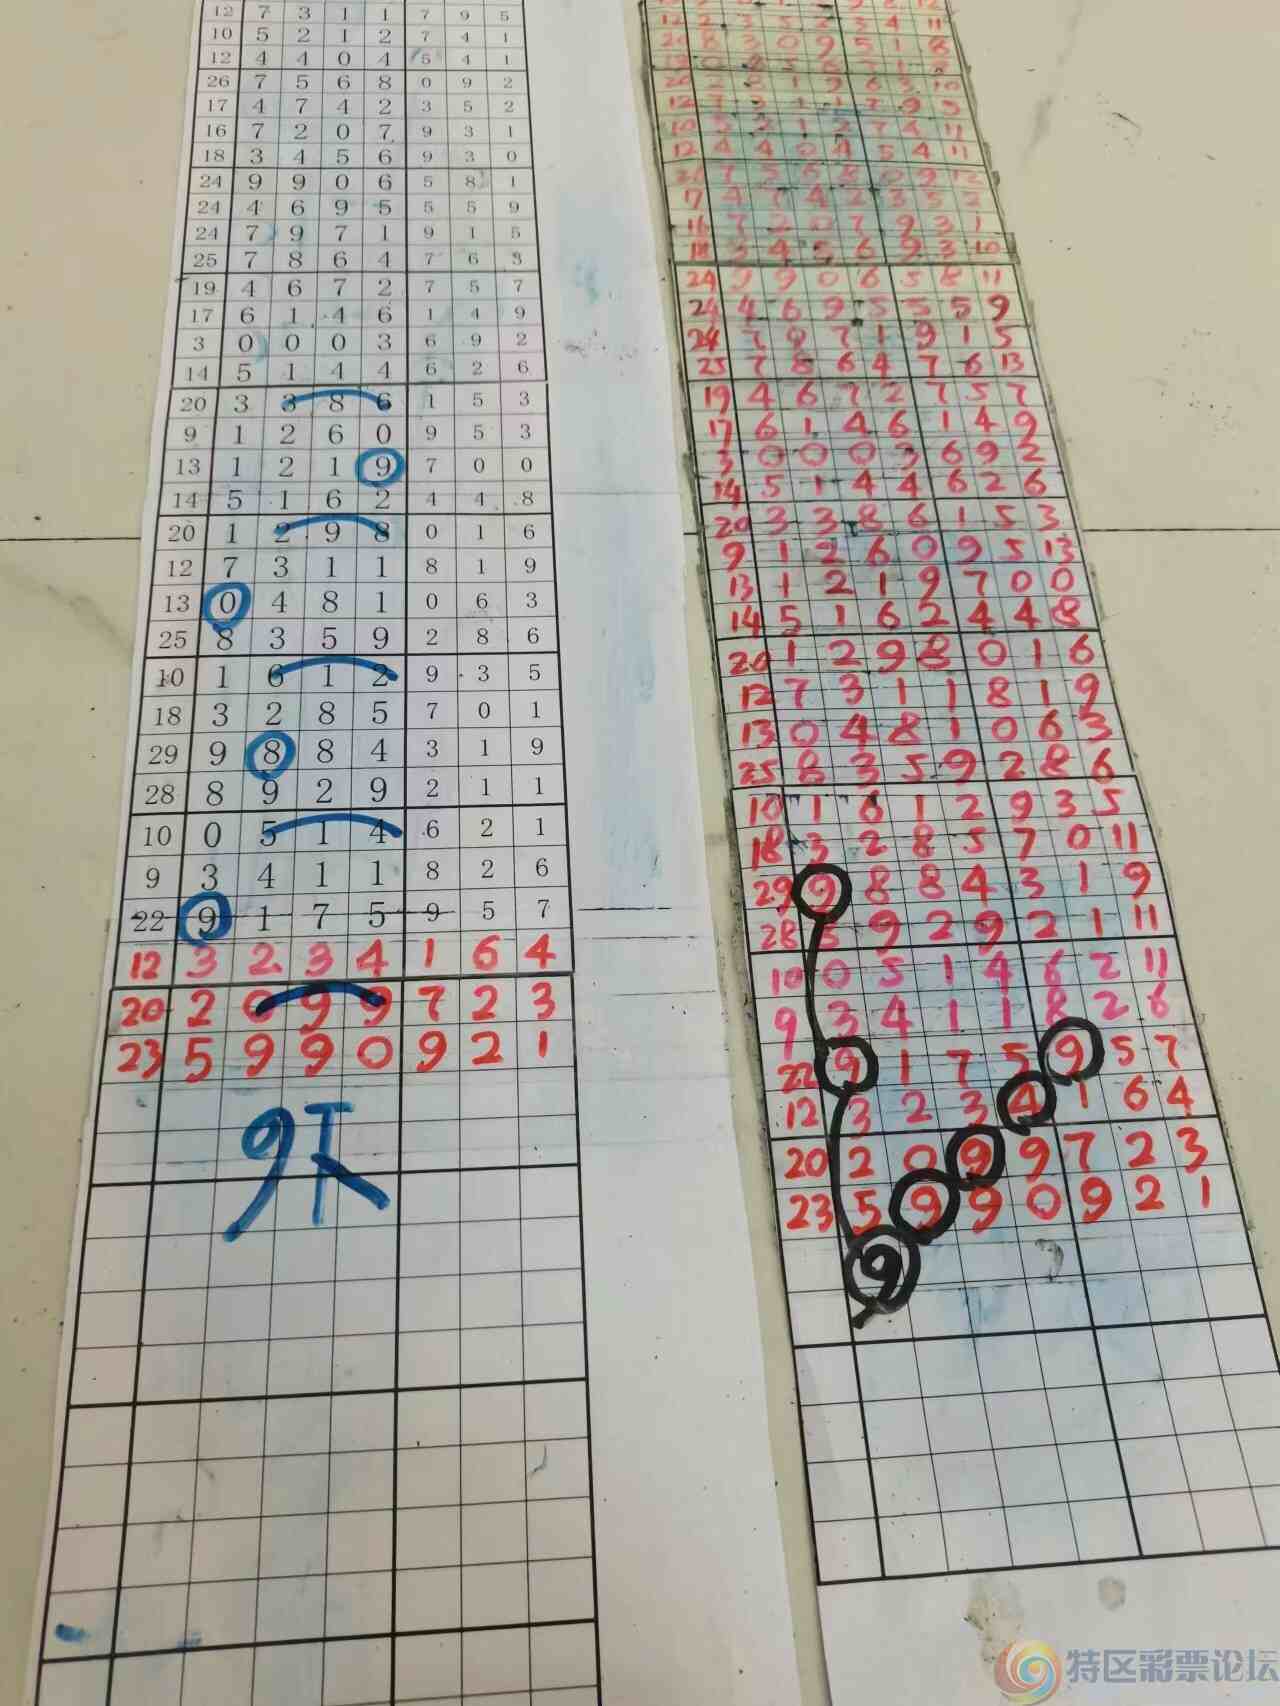 12 7 3 1 1 7 9 5
10 5 2 1 2 7 4 1
12 4 4 0 4 5 4 1
26 7 5 6 8 0 9 2
17 4 7 4 2 3 5 2
16 7 2 0 7 9 3 1
18 3 4 5 6 9 3 0
24 9 9 0 6 5 8 1
24 4 6 9 5 5 5 9
24 7 9 7 1 9 1 5
25 7 8 6 4 7 6 3
19 4 6 7 2 7 5 7
17 6 1 4 6 1 4 9
3 0 0 0 3 6 9 2
14 5 1 4 4 6 2 6
20 3 3 8 6 1 5 3
9 1 2 6 0 9 5 3
13 1 2 1 9 7 0 0
14 5 1 6 2 4 4 8
20 1 2 9 8 0 1 6
12 7 3 1 1 8 1 9
13 0 4 8 1 0 6 3
25 8 3 5 9 2 8 6
10 1 6 1 2 9 3 5
18 3 2 8 5 7 0 1
29 9 8 8 4 3 1 9
28 8 9 2 9 2 1 1
10 0 5 1 4 6 2 1
9 3 4 1 1 8 2 6
22 9 1 7 5 9 5 7
12 3 2 3 4 1 6 4
20 2 0 9 9 7 2 3
23 5 9 9 0 9 2 1
9下
12 2 3 5 2 3 4 11
20 8 3 0 9 5 1 8
26 2 8 1 9 6 3 10
12 7 3 1 1 7 9 5
10 5 2 1 2 7 4 11
12 4 4 0 4 5 4 11
26 7 5 6 8 0 9 12
17 4 7 4 2 3 5 2
16 7 2 0 7 9 3 1
18 3 4 5 6 9 3 10
24 9 9 0 6 5 8 11
24 4 6 9 5 5 5 9
24 7 9 7 1 9 1 5
25 7 8 6 4 7 6 13
19 4 6 7 2 7 5 7
17 6 1 4 6 1 4 9
3 0 0 0 3 6 9 2
14 5 1 4 4 6 2 6
20 3 3 8 6 1 5 3
9 1 2 6 0 9 5 13
13 1 2 1 9 7 0 0
14 5 1 6 2 4 4 8
20 1 2 9 8 0 1 6
12 7 3 1 1 8 1 9
13 0 4 8 1 0 6 3
25 8 3 5 9 2 8 6
10 1 6 1 2 9 3 5
18 3 2 8 5 7 0 11
29 9 8 8 4 3 1 9
28 8 9 2 9 2 1 11
10 0 5 1 4 6 2 11
9 3 4 1 1 8 2 6
22 9 1 7 5 9 5 7
12 3 2 3 4 1 6 4
20 2 0 9 9 7 2 3
23 5 9 9 0 9 2 1
9
特区彩票论坛